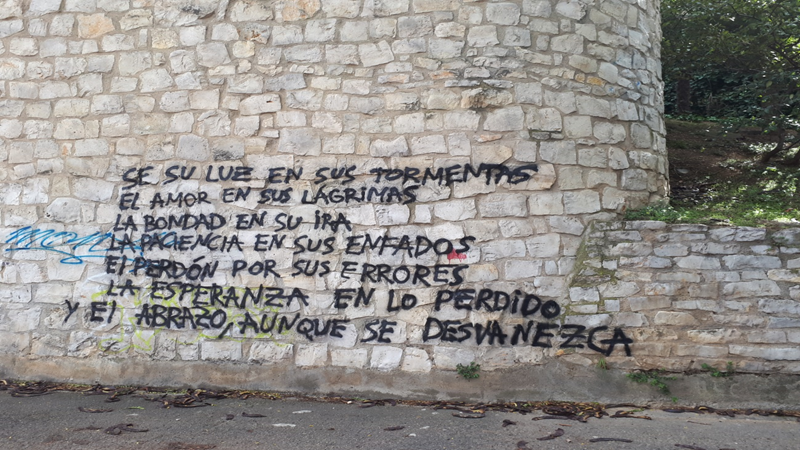 SE SU LUZ EN SUS TORMENTAS
EL AMOR EN SUS LÁGRIMAS
LA BONDAD EN SU IRA
LA PACIENCIA EN SUS ENFADOS
El PERDÓN POR SUS ERRORES
LA ESPERANZA EN LO PERDIDO
Y El ABRAZO, AUNQUE SE DESVANEZCA